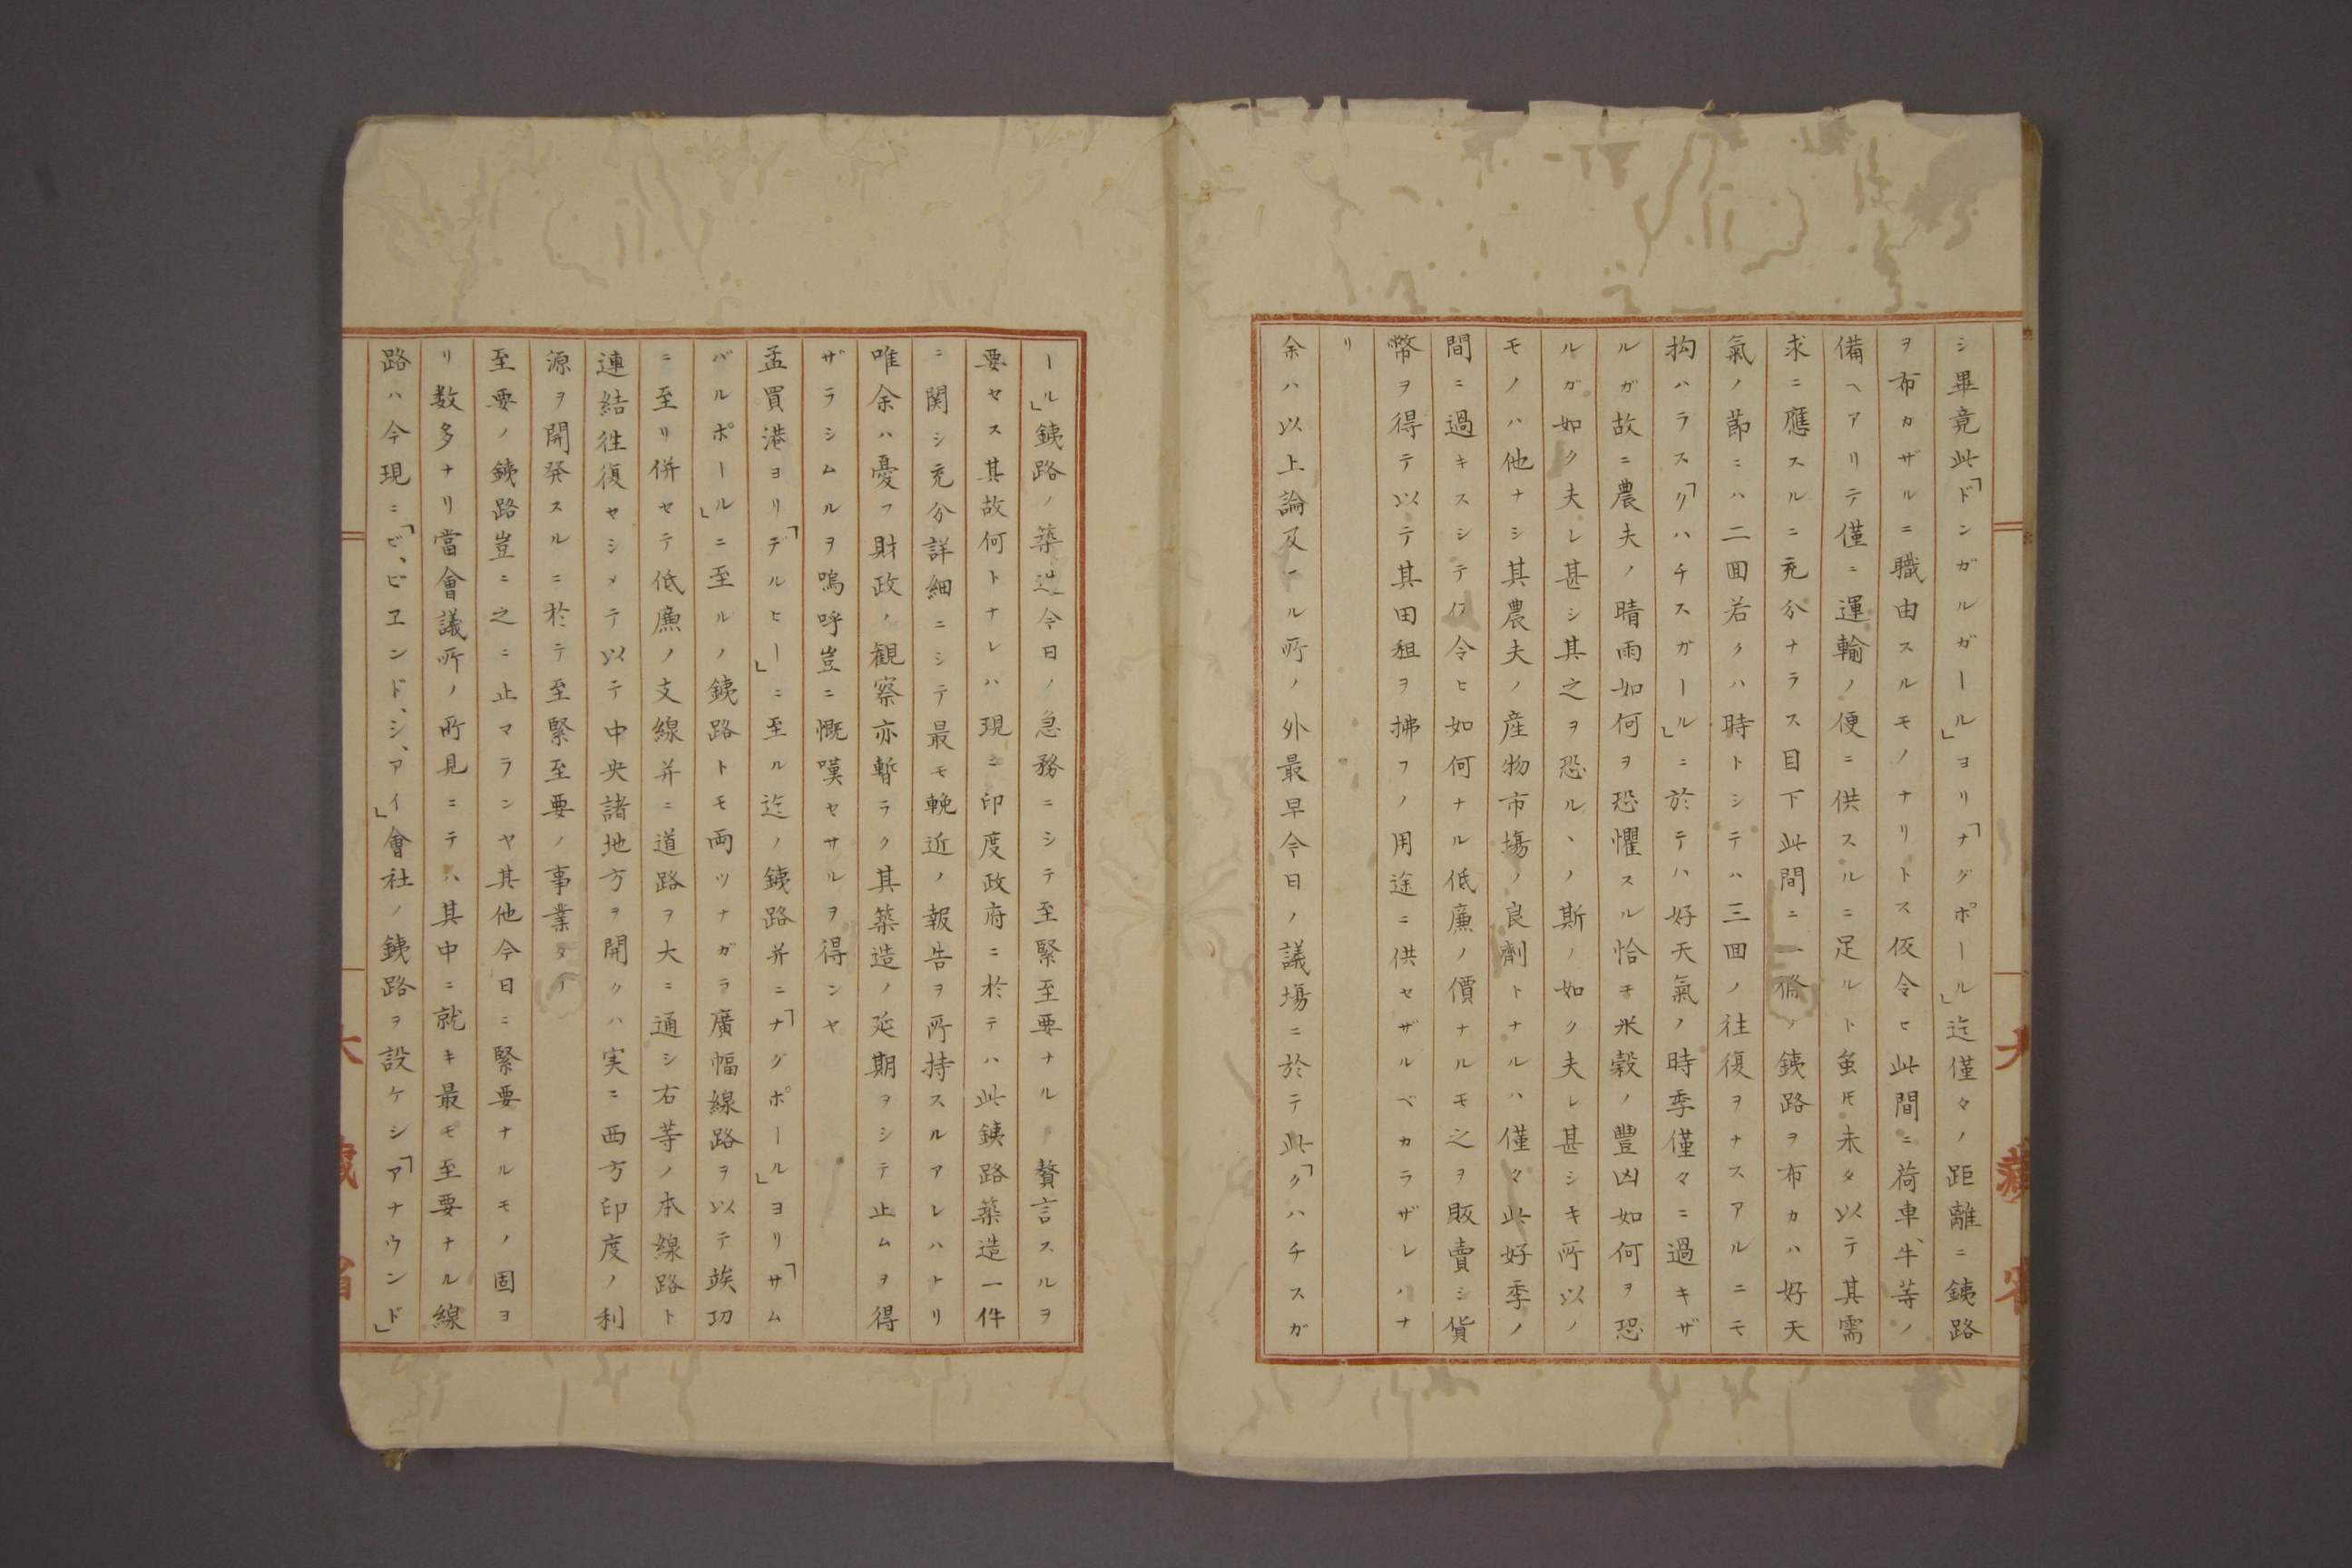 シ畢竟此「ドンガルガール」ヨリ「ナグポール」迄僅々ノ距離ニ銕路
ヲ布カザルニ職由スルモノナリトス仮令ヒ此間ニ荷車、牛等ノ
備ヘアリテ僅ニ運輸ノ便ニ供スルニ足ルト雖𪜈未タ以テ其需
求ニ應スルニ充分ナラス目下此間ニ一條ノ銕路ヲ布カハ好天
氣ノ節ニハ二囬若クハ時トシテハ三囬ノ往復ヲナスアルニモ
拘ハラス「クハチスガール」ニ於テハ好天氣ノ時季僅々ニ過キザ
ルガ故ニ農夫ノ晴雨如何ヲ恐懼スル恰モ米穀ノ豐凶如何ヲ恐
ルガ如ク夫レ甚シ其之ヲ恐ルヽノ斯ノ如ク夫レ甚シキ所以ノ
モノハ他ナシ其農夫ノ産物市塲ノ良劑トナルハ僅々此好季ノ
間ニ過キスシテ仮令ヒ如何ナル低廉ノ價ナルモ之ヲ販賣シ貨
幣ヲ得テ以テ其田租ヲ拂フノ用途ニ供セザルベカラザレハナ
リ
余ハ以上論及ールル所ノ外最早今日ノ議塲ニ於テ此「クハチスガ
ール」銕路ノ築造今日ノ急務ニシテ至緊至要ナル 贅言スルヲ
要セス其故何トナレハ現ニ印度政府ニ於テハ此銕路築造一件
ニ関シ充分詳細ニシテ最モ輓近ノ報告ヲ所持スルアレハトリ
唯余ハ憂フ財政ノ観察亦暫ラク其築造ノ延期ヲシテ止ムヲ得
ザラシムルヲ嗚呼豈ニ慨嘆セサルヲ得ンヤ
孟買港ヨリ「デルヒー」ニ至ル迄ノ銕路并ニ「ナグポール」ヨリ「サム
バルポール」ニ至ルノ銕路トモ両ツナガラ廣幅線路ヲ以テ竣功
ニ至リ併セテ低廉ノ支線并ニ道路ヲ大ニ通シ右等ノ本線路ト
連結徃復セシメテ以テ中央諸地方ヲ開クハ実ニ西方印度ノ利
源ヲ開発スルニ於テ至緊至要ノ事業タリ
至要ノ銕路豈ニ之ニ止マランヤ其他今日ニ緊要ナルモノ固ヨ
リ数多ナリ當會議所ノ所見ニテハ其中ニ就キ最モ至要ナル線
路ハ今現ニ「ビ、ビエンド、シ、アイ」會社ノ銕路ヲ設ケシ「アナウンド」
大藏省
大藏省